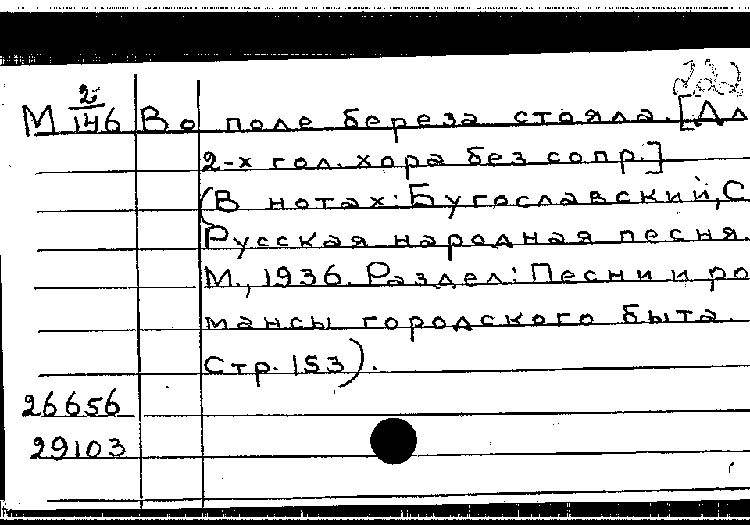 222
М 2/146 Во поле береза стояла. [Дл
2-х гол. хора без сопр.]
(В нотах: Бугославский, С
Русская народная песня.
М., 1936. Раздел: Песни и ро
мансы городского быта.
Стр. 153).
26656
29103